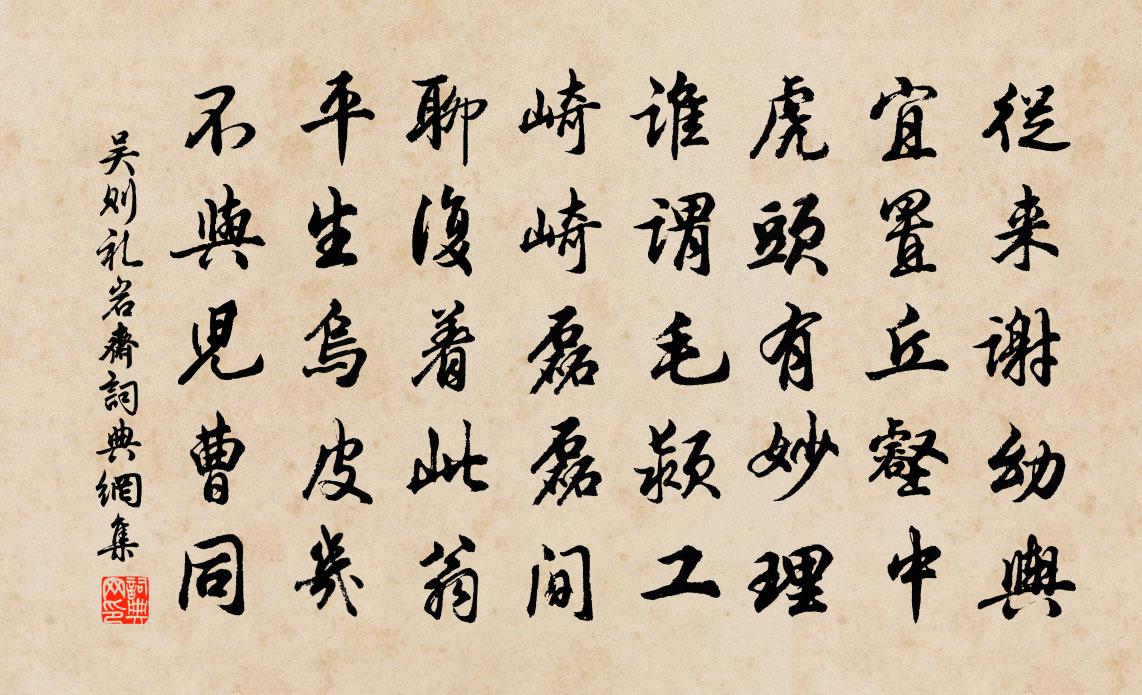 従来謝幼輿
宜置丘壑中
虎頭有妙理
誰謂毛颖工
崎崎磊磊間
聊復着此翁
平生烏皮几
不與児曹同
吴则礼岩斋詞典網集
詞典網印